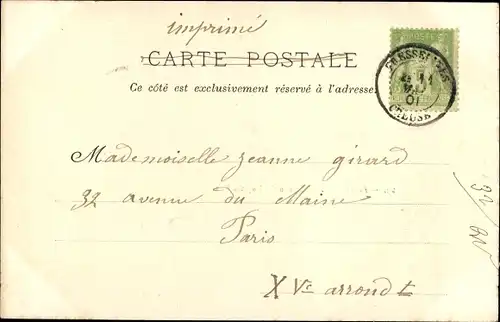 imprimé
CARTE POSTALE
Ce côté est exclusivement réservé à l'adresse.
CREUSE
01
Mademoiselle Jeanne Girard
32 avenue du Maine
Paris
XVe arrondt
32